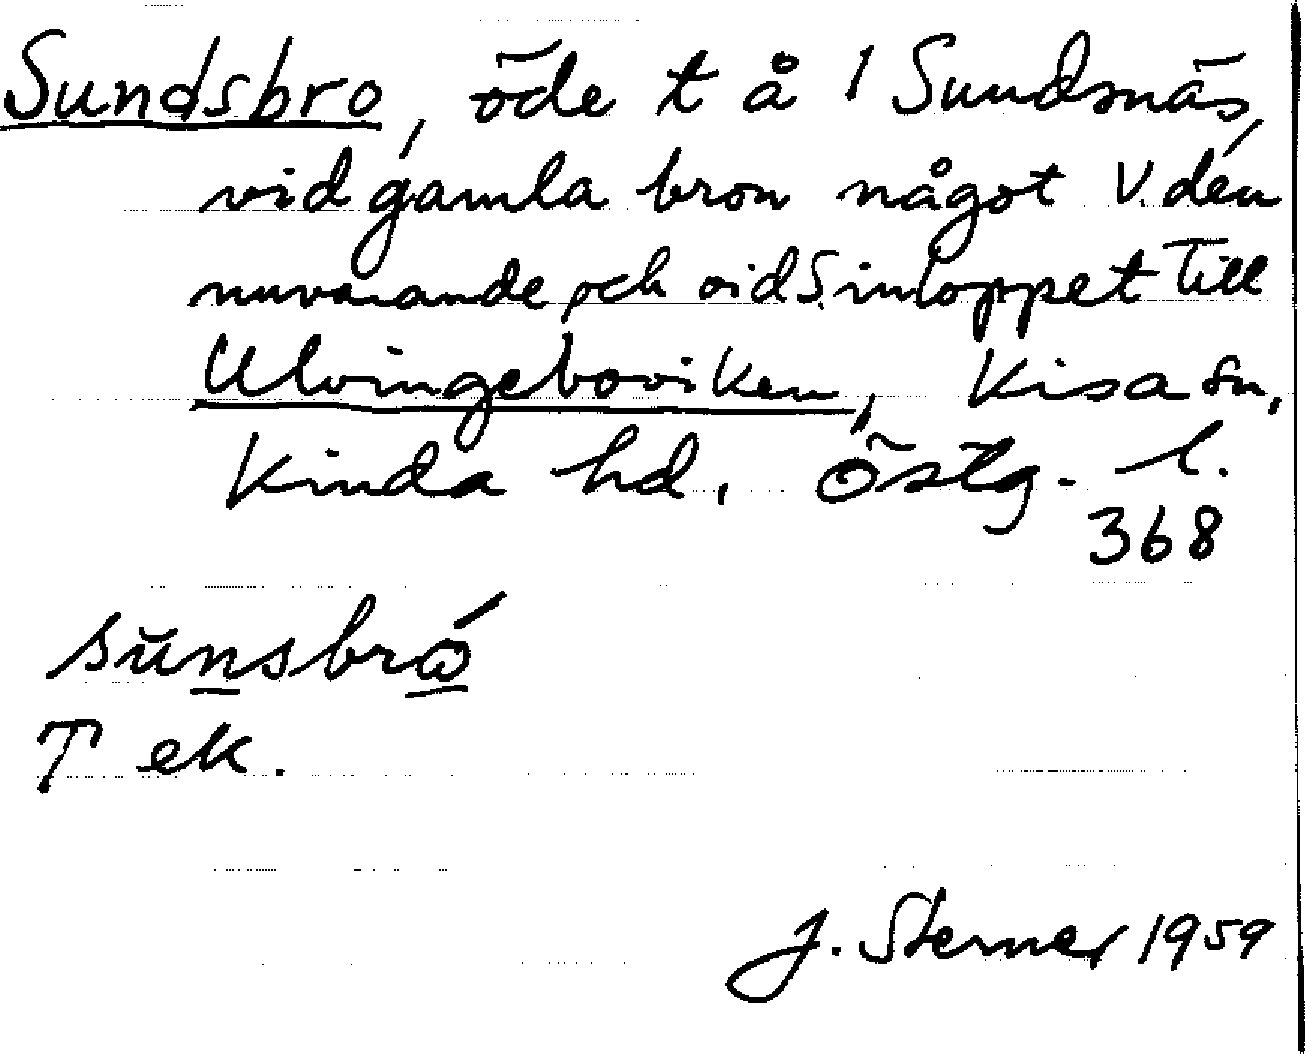 Sundsbro, öde t å 1 Sundsnäs,
vid gamla bron något V. den
nuvarande och vid S. inloppet till
Ulvingeboviken, Kisa sn,
Kinda hd, Östg. l.
368
sŭnsbró
T ek.
J. Sterner 1959